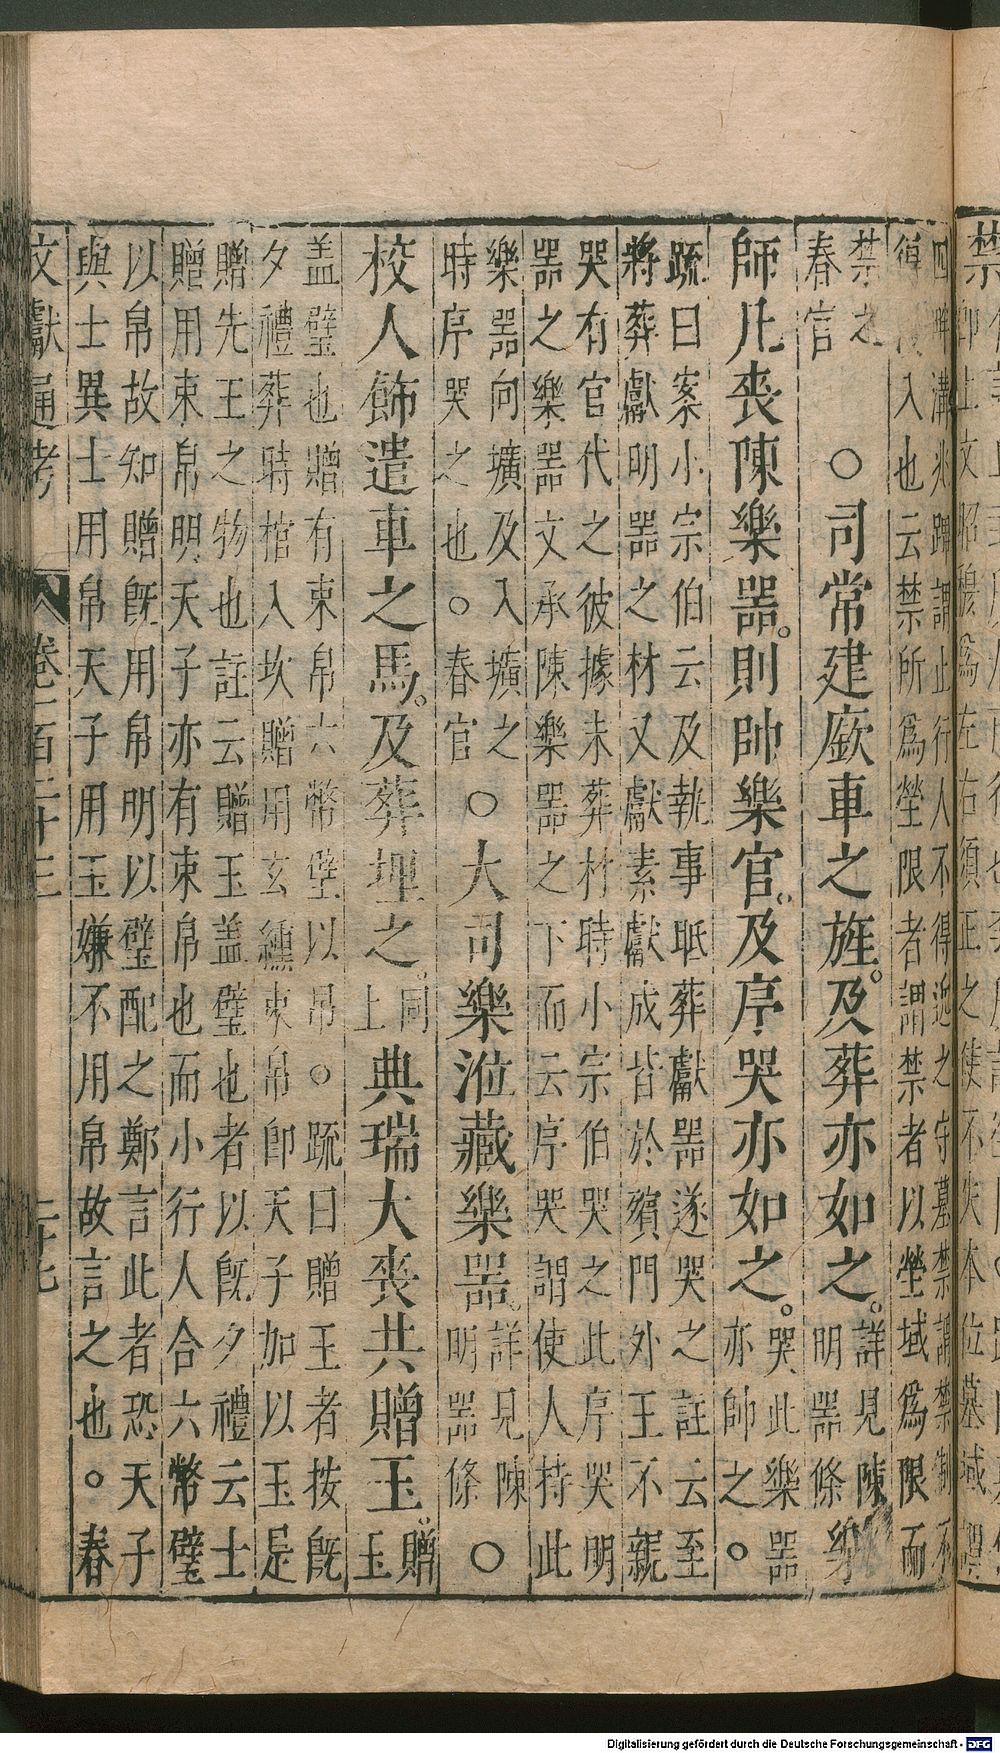 四畔溝兆蹕謂止行人不得近之守墓禁謂禁制不
得漫入也云禁所爲塋限者謂禁者以塋域爲限而
禁之
春官
○司常建廞車之旌。及葬亦如之。詳見陳樂
明器條
師凡喪陳樂器。則帥樂官。及序哭亦如之。哭此樂器
亦帥之。○
疏曰案小宗伯云及執事眡葬獻器遂哭之註云至
將葬獻明器之材又獻素獻成皆於殯門外王不親
哭有官代之彼據未葬材時小宗伯哭之此序哭明
器之樂器文承陳樂器之下而云序哭謂使人持此
樂器向壙及入壙之
時序哭之也。春官
○大司樂涖藏樂器。詳見陳
明器條 ○
校人飾遣車之馬。及葬埋之。同上
典瑞大喪共贈玉。贈玉
盖璧也贈有束帛六幣璧以帛○疏曰贈玉者按旣
夕禮葬時棺入坎贈用玄纁束帛卽天子加以玉是
贈先王之物也註云贈玉盖璧也者以旣夕禮云士
贈用束帛明天子亦有束帛也而小行人合六幣璧
以帛故知贈旣用帛明以璧配之鄭言此者恐天子
與士異士用帛天子用玉嫌不用帛故言之也。春
文獻通考
卷一百二十三
二十七
Digitalisierung gefördert durch die Deutsche Forschungsgemeinschaft - DFG